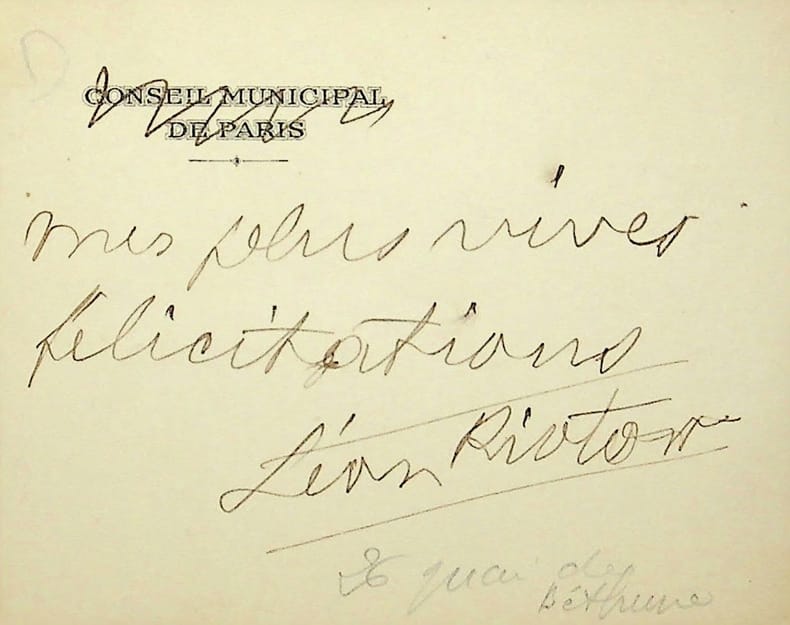 D
CONSEIL MUNICIPAL
DE PARIS
mes plus vives
félicitations
Léon Riotor
26 quai de
Béthune